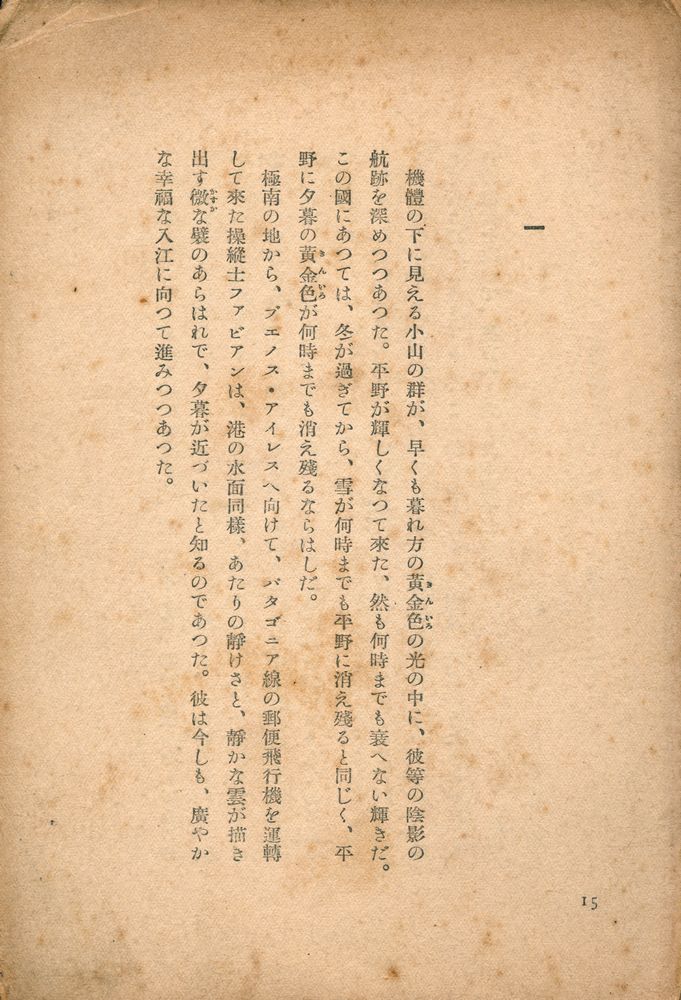 一
機體の下に見える小山の群が、早くも暮れ方の黄金色の光の中に、彼等の陰影の
航跡を深めつつあつた。平野が輝しくなつて來た、然も何時までも衰へない輝きだ。
この國にあつては、冬が過ぎてから、雪が何時までも平野に消え殘ると同じく、平
野に夕暮の黄金色が何時までも消え殘るならはしだ。
極南の地から、ブエノス・アイレスへ向けて、パタゴニア線の郵便飛行機を運轉
して來た操縱士ファビアンは、港の水面同樣、あたりの靜けさと、靜かな雲が描き
出す微な襞のあらはれで、夕暮が近づいたと知るのであつた。彼は今しも、廣やか
な幸福な入江に向つて進みつつあつた。
15